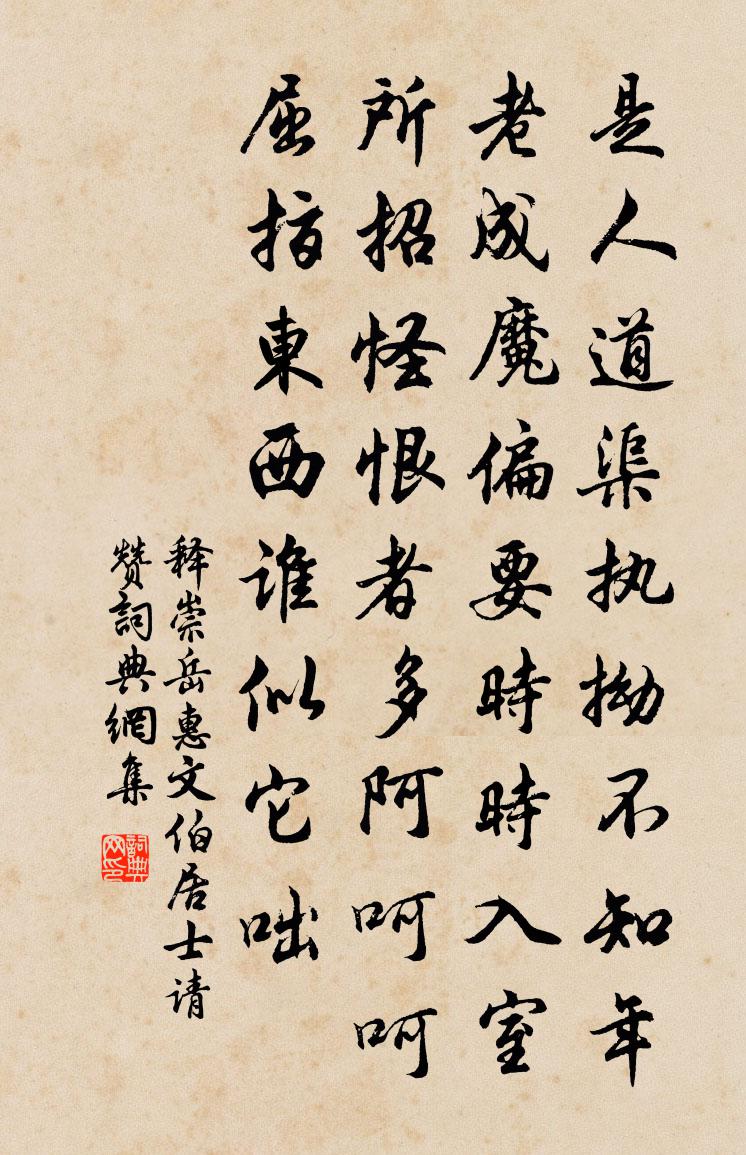 是人道渠执拗不知年
老成魔偏要時時入室
所招怪恨者多阿呵呵
屈指東西谁似它咄
释崇岳惠文伯居士请
赞詞典網集
詞典网印